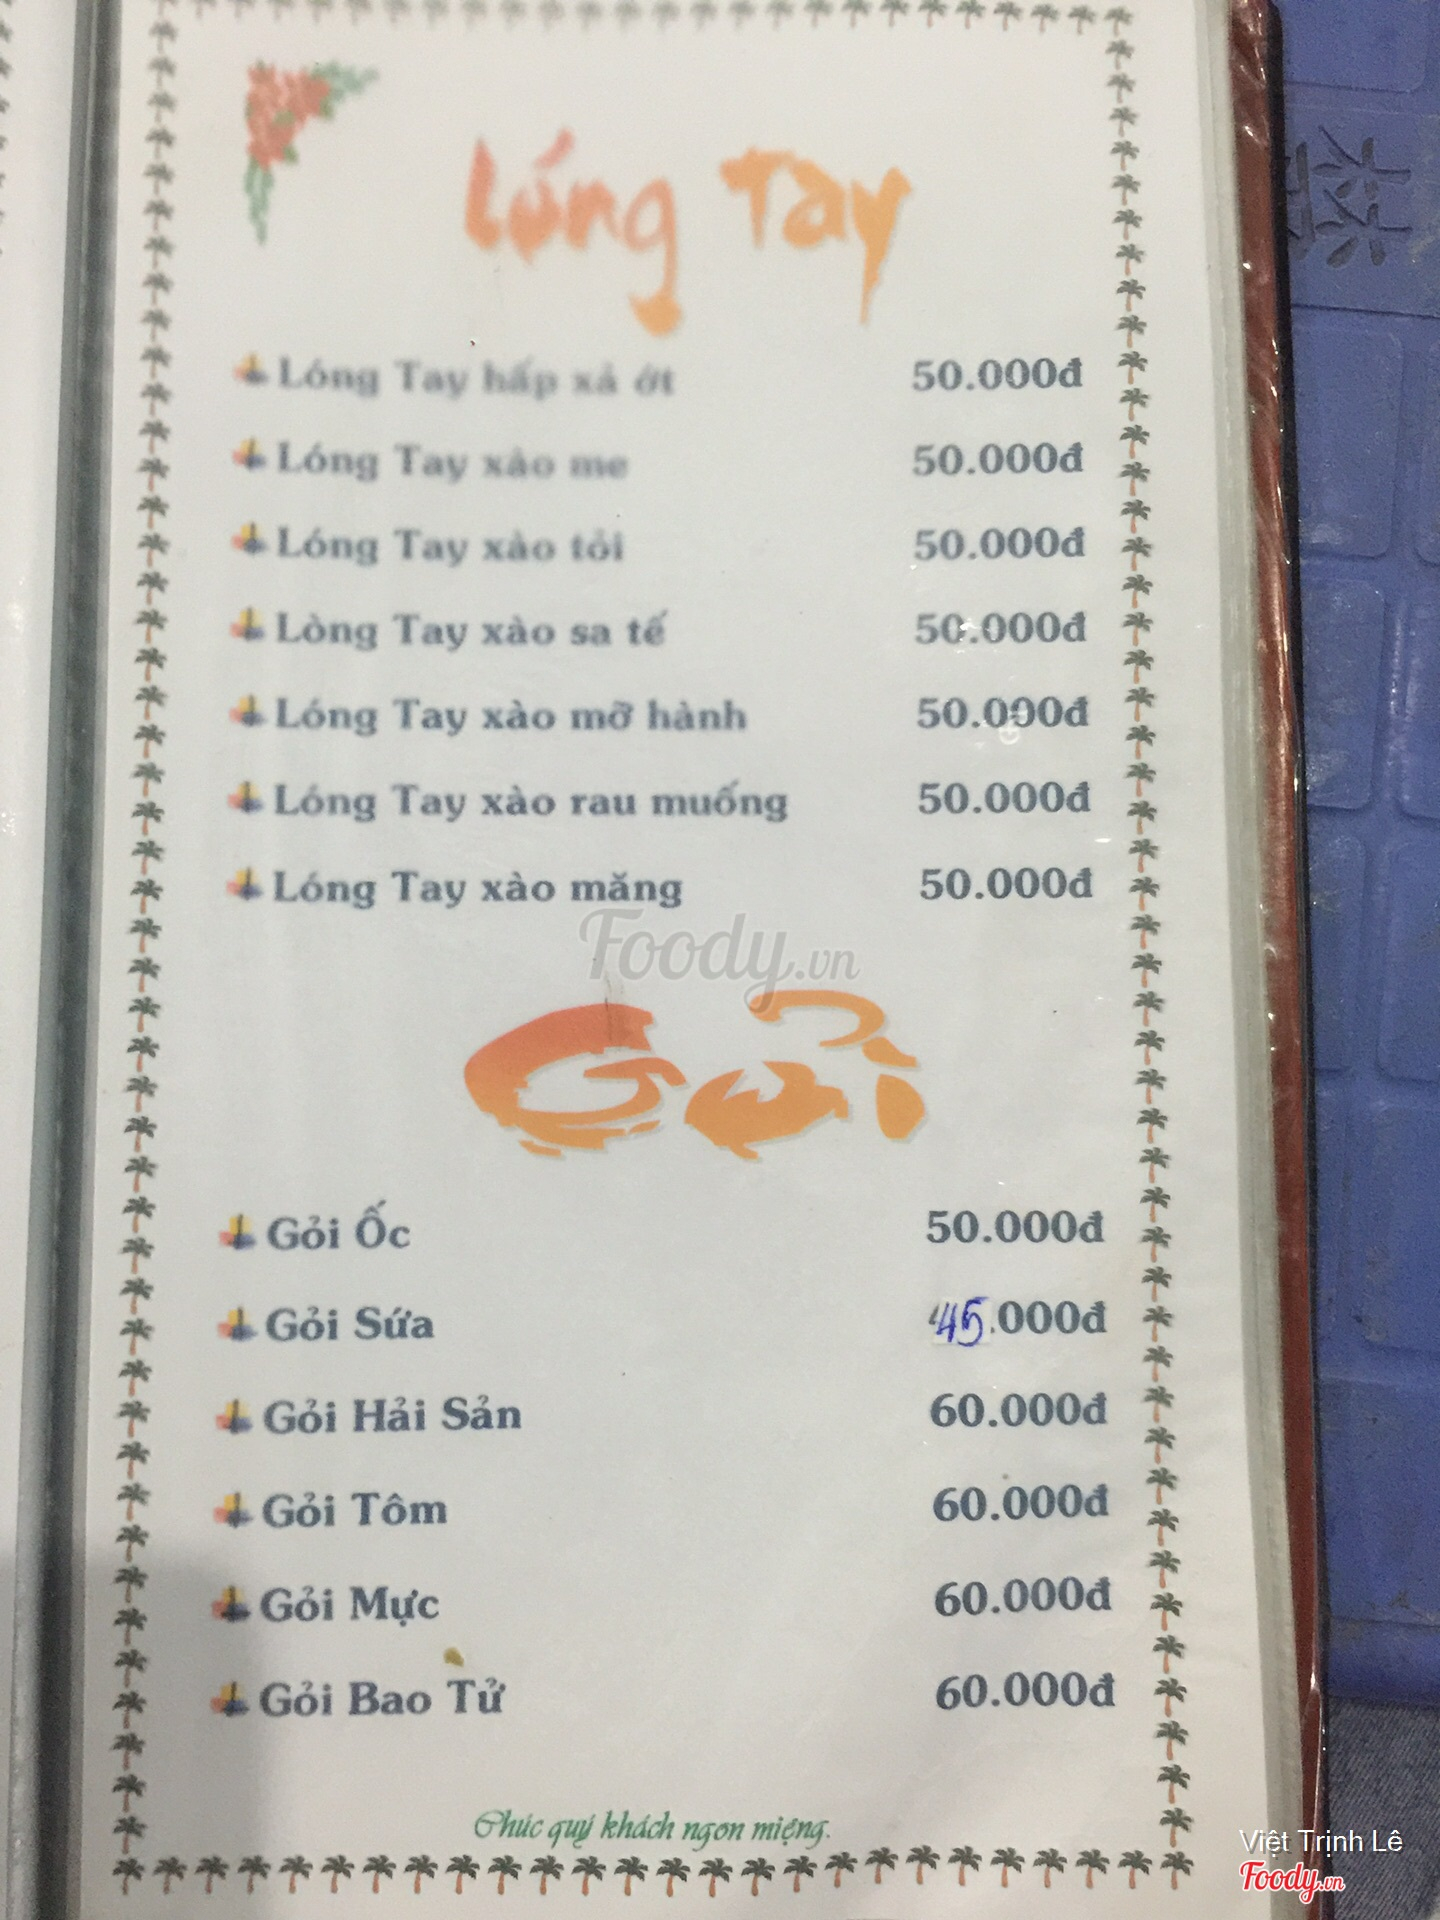 Lóng Tay
Lóng Tay hấp xả ớt 50.000đ
Lóng Tay xào me 50.000đ
Lóng Tay xào tỏi 50.000đ
Lòng Tay xào sa tế 50.000đ
Lóng Tay xào mỡ hành 50.000đ
Lóng Tay xào rau muống 50.000đ
Lóng Tay xào măng 50.000đ
Foody.vn
Gỏi
Gỏi Ốc 50.000đ
Gỏi Sứa 45.000đ
Gỏi Hải Sản 60.000đ
Gỏi Tôm 60.000đ
Gỏi Mực 60.000đ
Gỏi Bao Tử 60.000đ
Chúc quý khách ngon miệng.
Việt Trịnh Lê
Foody.vn